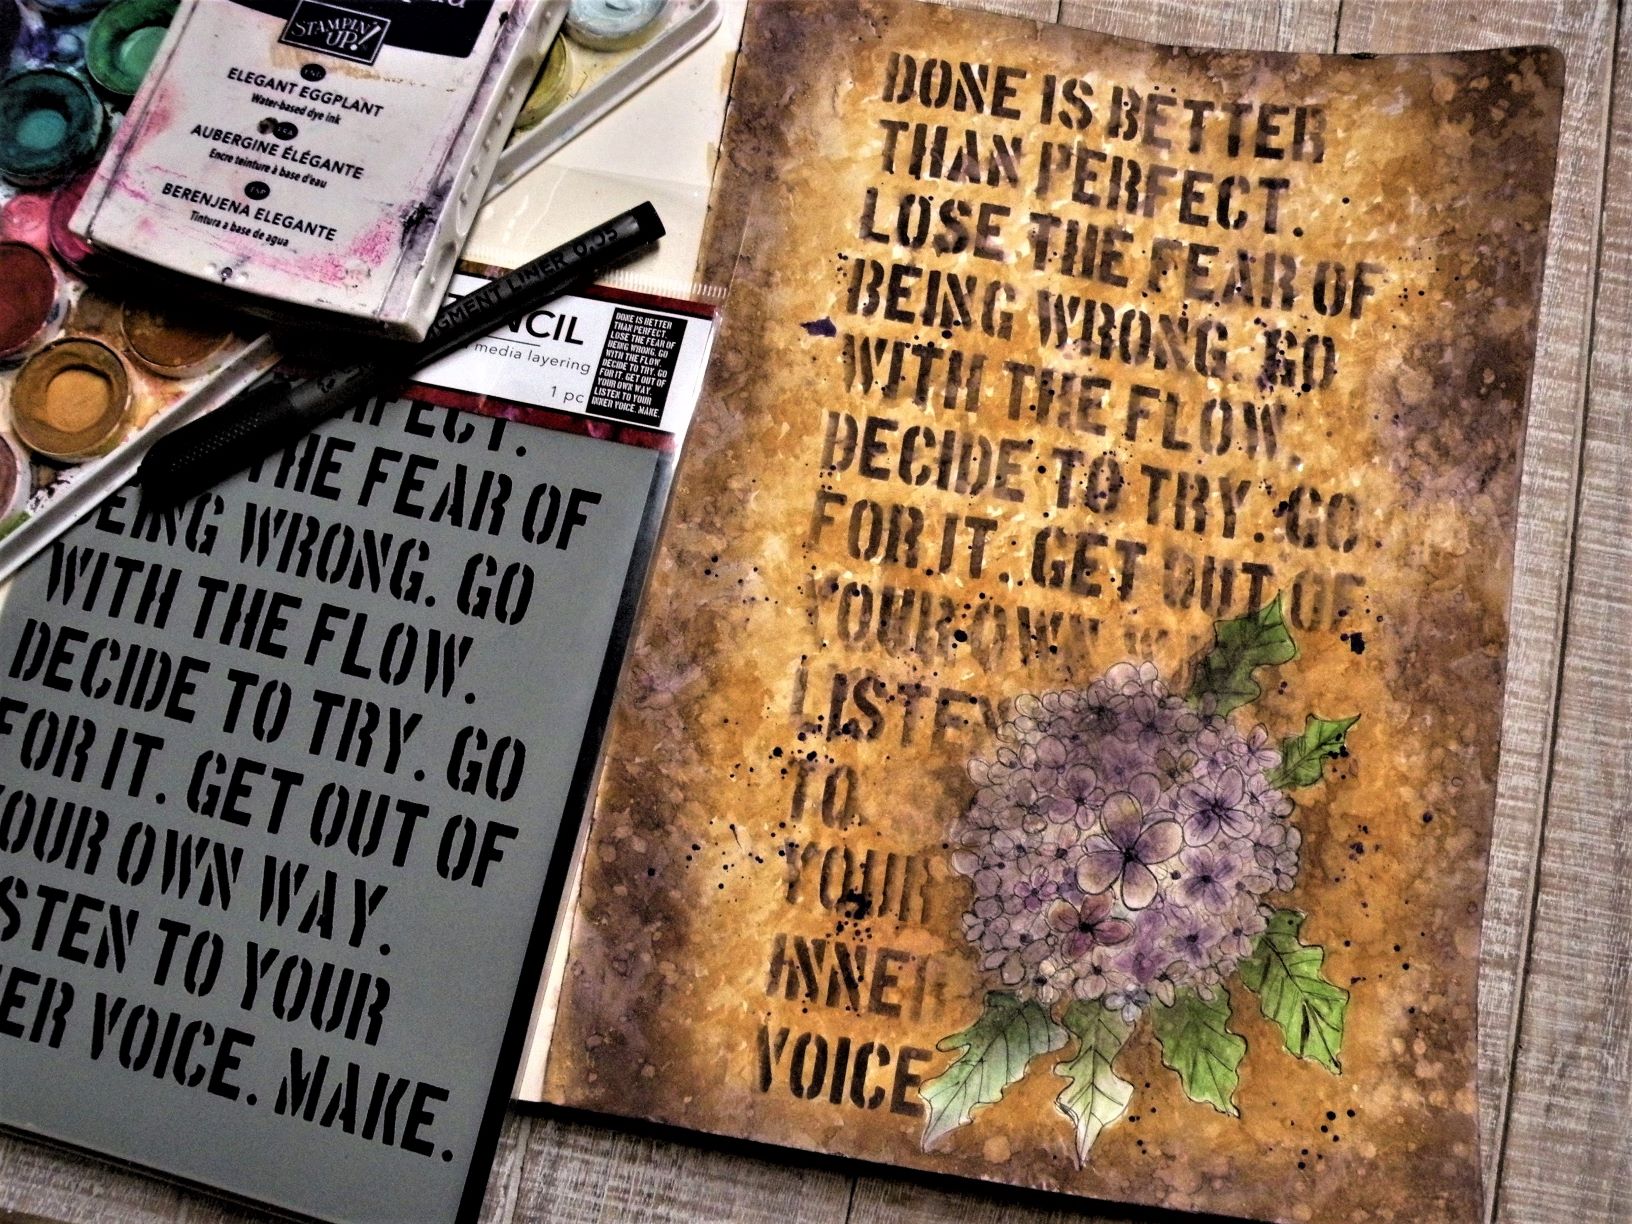 STAMPIN' UP!
ELEGANT EGGPLANT
Water-based dye ink
AUBERGINE ÉLÉGANTE
Encre teinture à base d'eau
BERENJENA ELEGANTE
Tintura a base de agua
GMENT LINER 0.05
NCIL
media layering
1 pc
DONE IS BETTER
THAN PERFECT.
LOSE THE FEAR OF
BEING WRONG. GO
WITH THE FLOW.
DECIDE TO TRY. GO
FOR IT. GET OUT OF
YOUR OWN WAY.
LISTEN TO YOUR
INNER VOICE. MAKE.
RFECT.
THE FEAR OF
BEING WRONG. GO
WITH THE FLOW.
DECIDE TO TRY. GO
FOR IT. GET OUT OF
YOUR OWN WAY.
STEN TO YOUR
ER VOICE. MAKE.
DONE IS BETTER
THAN PERFECT.
LOSE THE FEAR OF
BEING WRONG. GO
WITH THE FLOW.
DECIDE TO TRY. GO
FOR IT. GET OUT OF
YOUR OWN W
LISTEN
TO
YOUR
INNER
VOICE